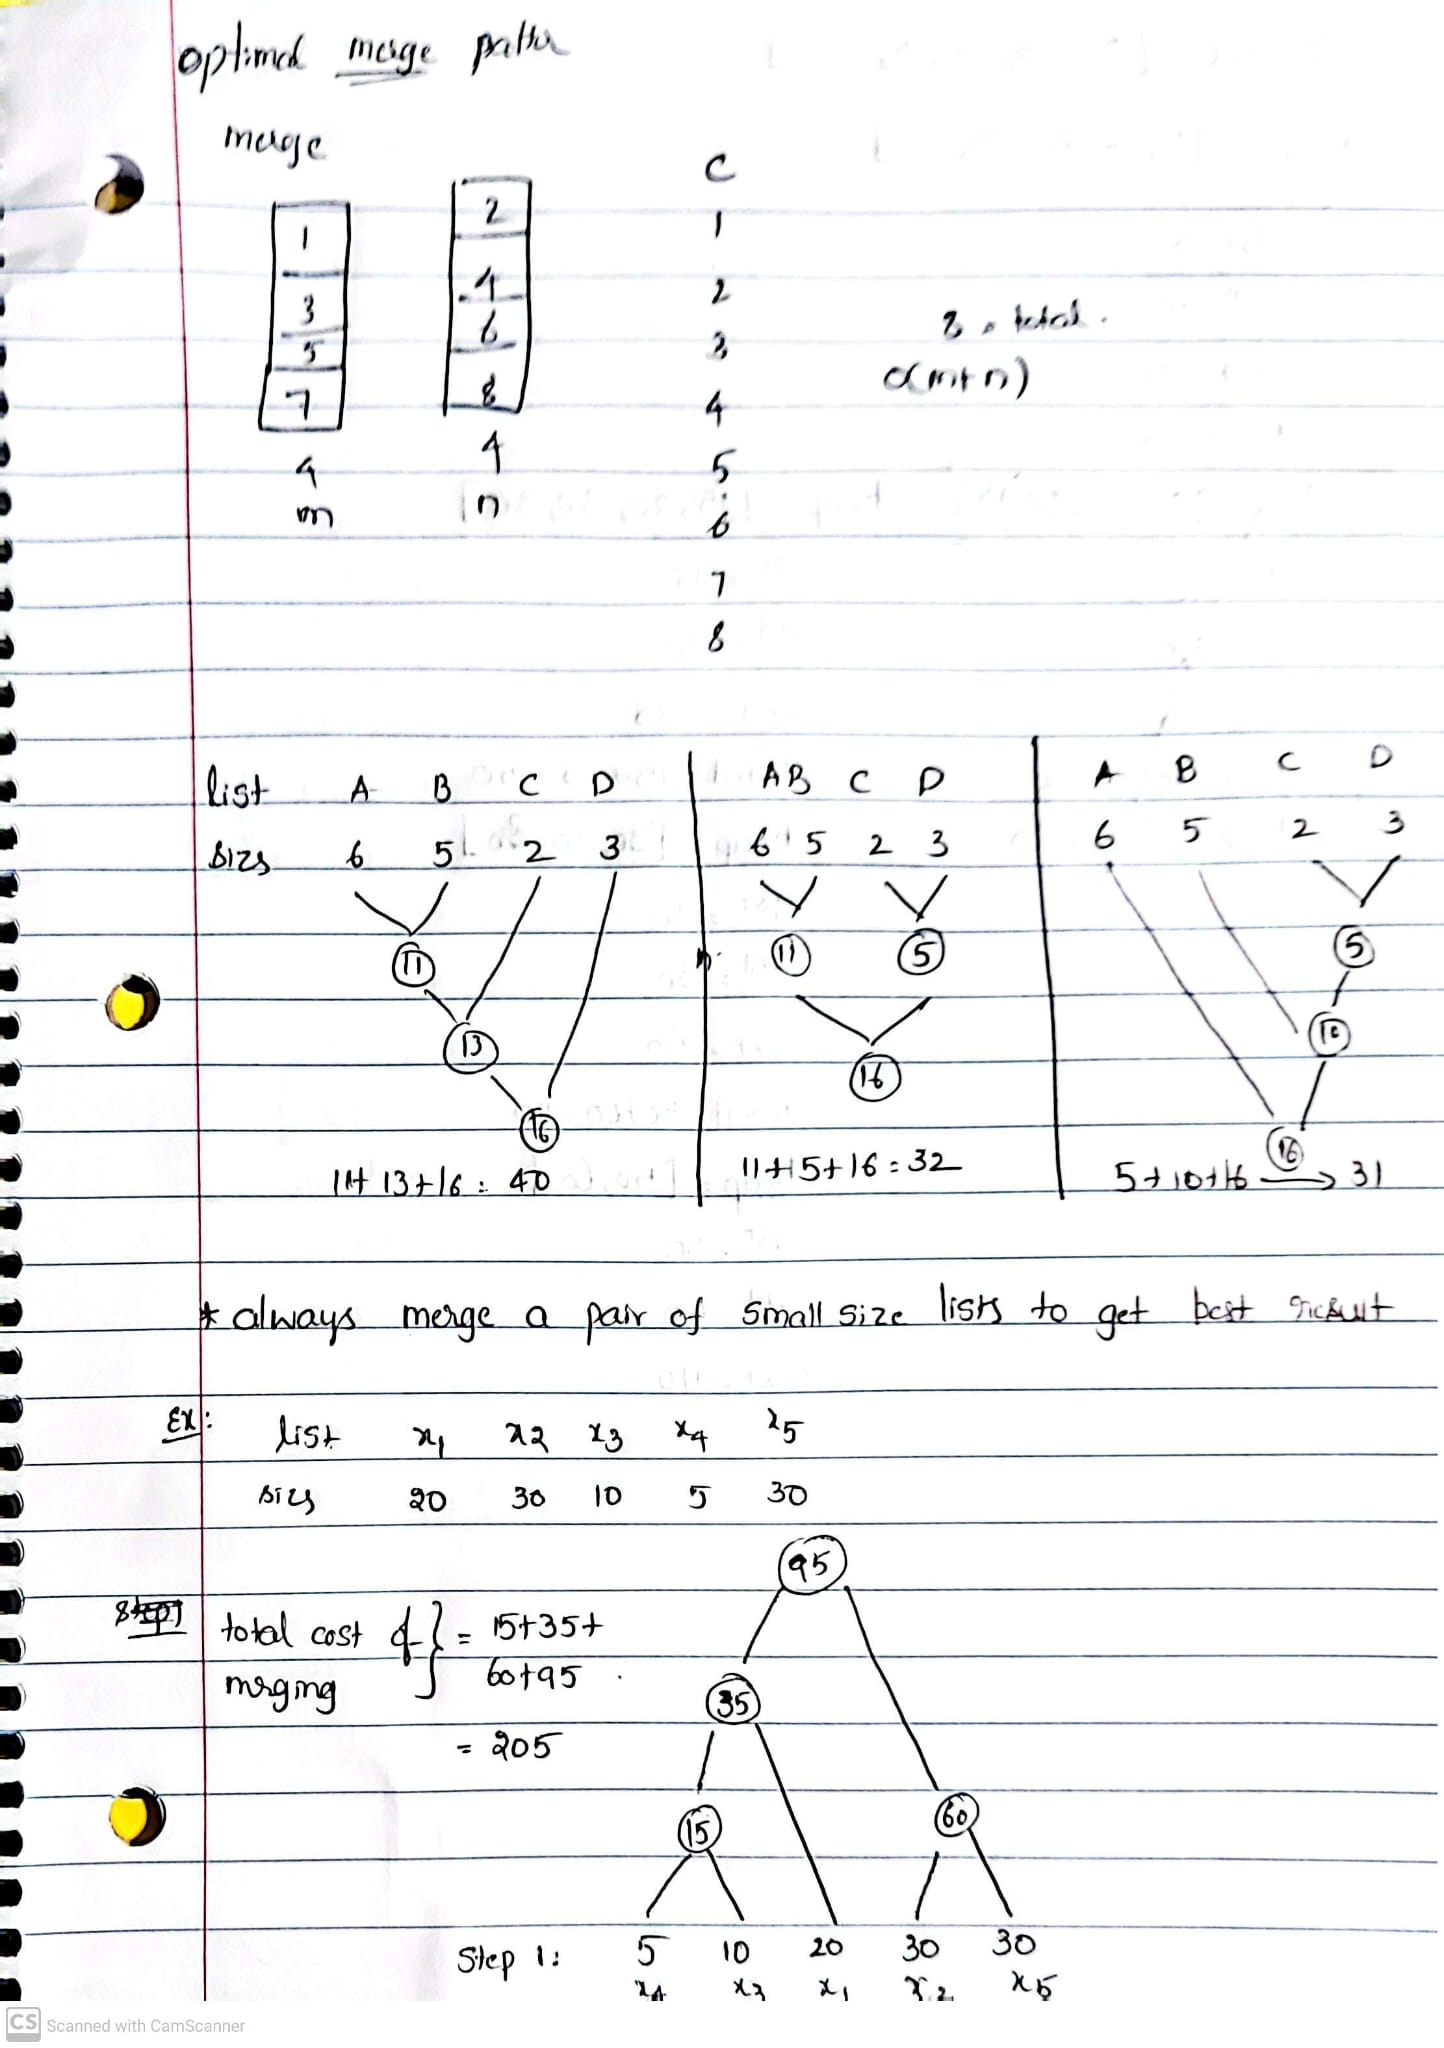 optimal merge patter
merge
C
1 2 1
3 4 2
5 6 3
7 8 4
8 total.
O(m+n)
4 4 5
m n 6
7
8
list A B C D
sizs 6 5 2 3
11
13
16
11+13+16 = 40
AB C D
6 5 2 3
11 5
16
11+5+16 = 32
A B C D
6 5 2 3
5
10
16
5+10+16 → 31
* always merge a pair of small size lists to get best result
Ex: list x1 x2 x3 x4 x5
sizs 20 30 10 5 30
95
total cost of } = 15+35+
merging 60+95
= 205
35
15 60
Step 1: 5 10 20 30 30
x4 x3 x1 x2 x5
CS Scanned with CamScanner